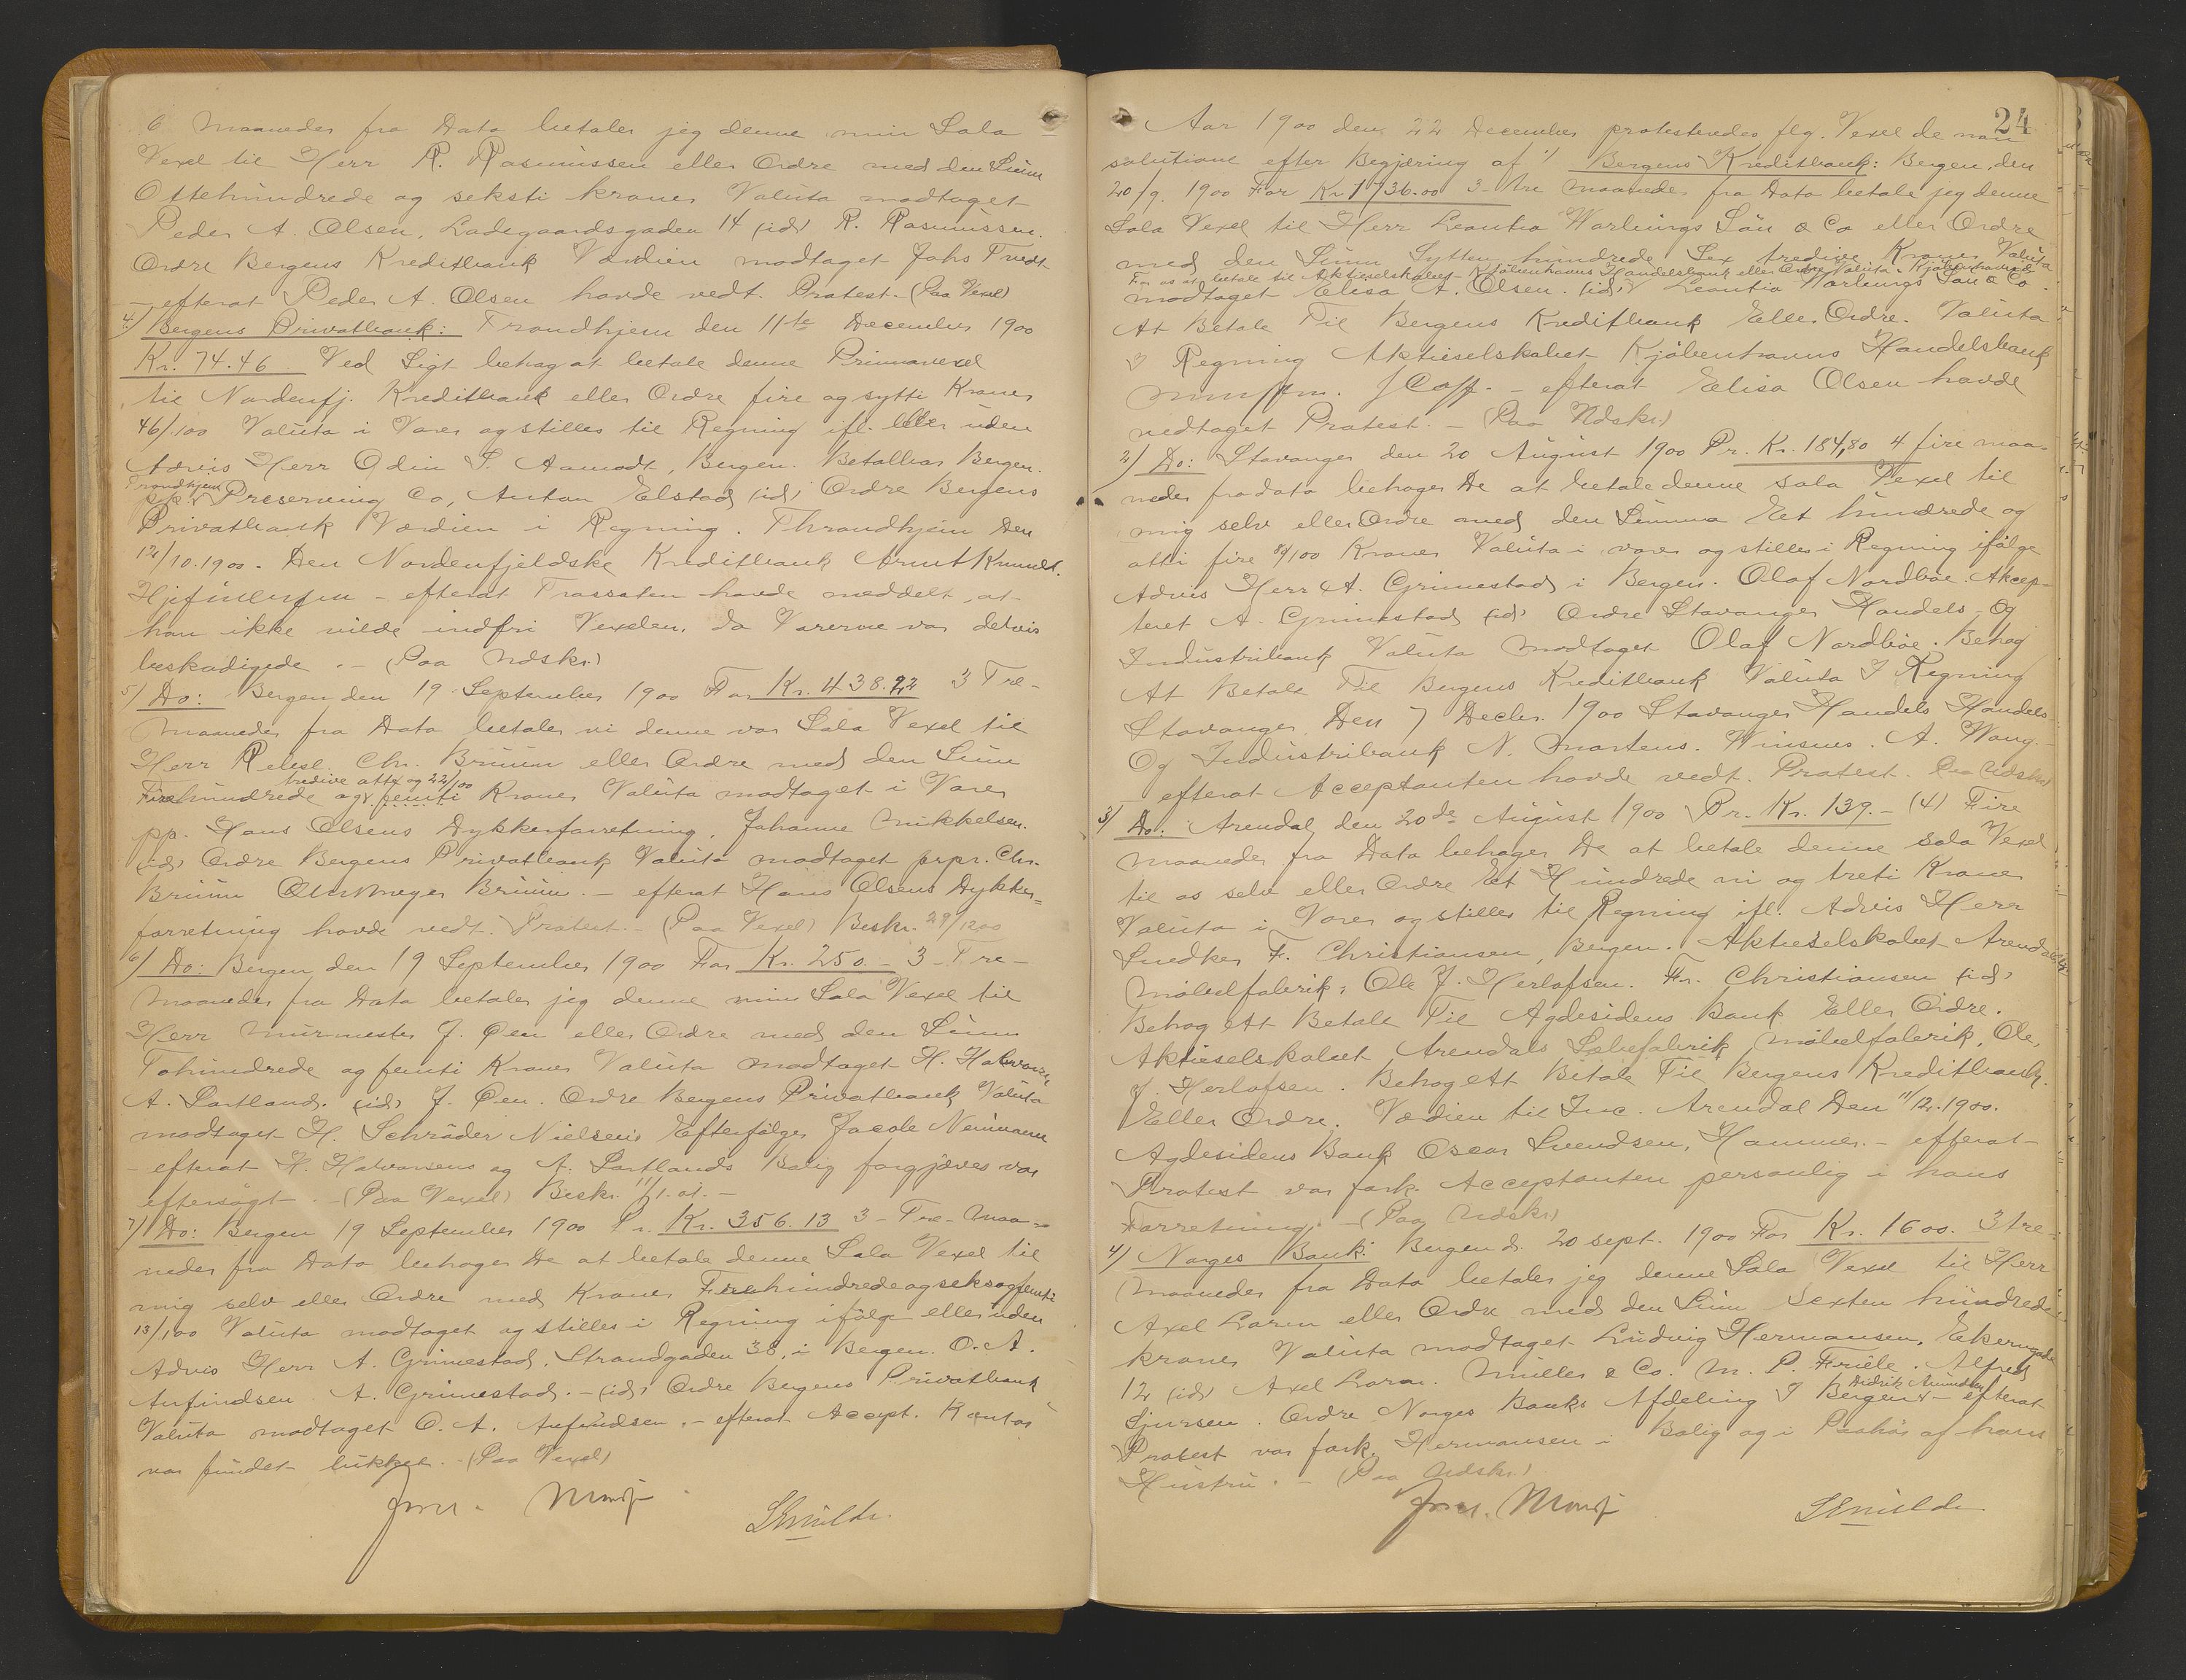 6 Maaneder fra Dato betaler jeg denne min Sola
Vexel til Herr R. Rasmussen eller Ordre med den Sum
Ottehundrede og seksti kroner Valuta modtaget
Peder A. Olsen, Ladegaardsgaden 14 (id) R. Rasmussen.
Ordre Bergens Kreditbank Værdien modtaget Johs Tvedt
- efterat Peder A. Olsen havde vedt. Protest. - (Paa Vexel)
4) Bergens Privatbank: Trondhjem den 11te December 1900
Kr. 74.46 Ved Sigt behag at betale denne Primavexel
til Nordenfj. Kreditbank eller Ordre fire og sytti Kroner
46/100 Valuta i Varer og stilles til Regning ifl. eller uden
Advis Herr Odin S. Aamodt, Bergen. Betalbar Bergen.
Trondhjem
pp. Preserving Co, Anton Elstad (id) Ordre Bergens
Privatbank Værdien i Regning. Throndhjem Den
12/10.1900. Den Nordenfjeldske Kreditbank
- efterat Trassaten havde meddelt, at
han ikke vilde indfri Vexelen, da Varerne var delvis
beskadigede. - (Paa Udskr.)
5) Do: Bergen den 19 September 1900 For Kr. 438.22 3 Tre-
Maaneder fra Dato betaler vi denne vor Sola Vexel til
Herr Rebsl. Chr. Bruun eller Ordre med den Sum
tredive otte og 22/100
Firehundrede og femti Kroner Valuta modtaget i Varer
pp. Hans Olsens Dykkerforretning. Johanne Mikkelsen.
(id) Ordre Bergens Privatbank Valuta modtaget prpr. Chr.
Bruun Bruun. - efterat Hans Olsens Dykker=
forretning havde vedt. Protest. - (Paa Vexel) Beskr. 29/1200
6) Do: Bergen den 19 September 1900 For Kr. 250.- 3 - Tre-
Maaneder fra Dato betaler jeg denne min Sola Vexel til
Herr Murmester J. Øen eller Ordre med den Sum
Tohundrede og femti Kroner Valuta modtaget H. Halvorsen,
A. Sortland. (id) J. Øen. Ordre Bergens Privatbank Valuta
modtaget H. Schrøder Nielsens Efterfølger Jacob Neumann
- efterat H. Halvorsens og A. Sortlands Bolig forgjæves var
eftersøgt. - (Paa Vexel) Beskr. 11/1.01. -
7) Do: Bergen 19 September 1900 Pr. Kr. 356.13 3 - Tre - Maa-
neder fra Dato behager De at betale denne Sola Vexel til
mig selv eller Ordre med Kroner Trehundredeogseksogfemti
13/100 Valuta modtaget og stilles i Regning ifølge eller uden
Advis Herr A. Grimestad, Strandgaden 38, i Bergen. O. A.
Anfindsen A. Grimestad. - (id) Ordre Bergens Privatbank
Valuta modtaget O. A. Anfindsen. - efterat Accept. Kontor
var fundet lukket. - (Paa Vexel)
24
Aar 1900 den 22 December protesteredes flg. Vexel de non
solutione efter Begjæring af 1) Bergens Kreditbank: Bergen, den
20/9. 1900 For Kr. 1736.00 3 - tre Maaneder fra Dato betale jeg denne
Sola Vexel til Herr Leontin Warlings Søn & Co eller Ordre
med den Sum Sytten hundrede Sex tredive Kroner Valuta
For os at betale til Aktieselskabet Kjöbenhavns Handelsbank eller Ordre Valuta. Kjöbenhavn d.
modtaget Elisa A. Olsen. (id) Leontin Warlings Søn & Co.
At Betale Til Bergens Kreditbank Eller Ordre. Valuta
I Regning Aktieselskabet Kjöbenhavns Handelsbank
- efterat Elisa Olsen havde
vedtaget Protest. - (Paa Udskr.)
2) Do: Stavanger den 20 August 1900 Pr. Kr. 184,80 4 fire maa-
neder fra dato behager De at betale denne sola Vexel til
mig selv eller Ordre med den Summa Et hundrede og
otti fire 80/100 Kroner Valuta i varer og stilles i Regning ifølge
Advis Herr A. Grimestad i Bergen. Olaf Nordbøe. Akcep-
teret A. Grimestad (id) Ordre Stavanger Handels- Og
Industribank Valuta Modtaget Olaf Nordbøe. Behag
At Betale Til Bergens Kreditbank Valuta I Regning
Stavanger Den 7 Decbr. 1900 Stavanger Handels Handels
Og Industribank N. Mortens. Winsnes. A. Wang. -
efterat Acceptanten havde vedt. Protest. (Paa Udskr.)
3) Do: Arendal, den 20de August 1900 Pr. Kr. 139.- (4) Fire
Maaneder fra Dato behager De at betale denne sola Vexel
til os selv eller Ordre Et Hundrede ni og treti Kroner
Valuta i Varer og stilles til Regning ifl. Advis Herr
Snedker F. Christiansen, Bergen. Aktieselskabet Arendals
Møbelfabrik: Ole J. Herlofsen. Fr. Christiansen (id)
Behag At Betale Til Agdesidens Bank Eller Ordre.
Aktieselskabet Arendals Møbelfabrik, Ole,
J. Herlofsen. Behag At Betale Til Bergens Kreditbank.
Eller Ordre. Værdien til Inc. Arendal Den 11/12.1900.
Agdesidens Bank Oscar Svendsen, Hammer. - efterat
Protest var fork. Acceptanten personlig i hans
Forretning. - (Paa Udskr.)
4) Norges Bank: Bergen d. 20 sept. 1900 For Kr. 1600. 3 tre-
Maaneder fra Dato betaler jeg denne Sola Vexel til Herr
Axel Loren eller Ordre med den Sum Sexten hundrede
kroner Valuta modtaget Ludvig Hermansen,
12 (id) Axel Loren. Müller & Co. M. P. Friele. Alfred
Didrik Amundsen
Sjursen. Ordre Norges Banks Afdeling I Bergen - efterat
Protest var fork. Hermansen i Bolig og i Paahør af hans
Hustru. - (Paa Udskr.)